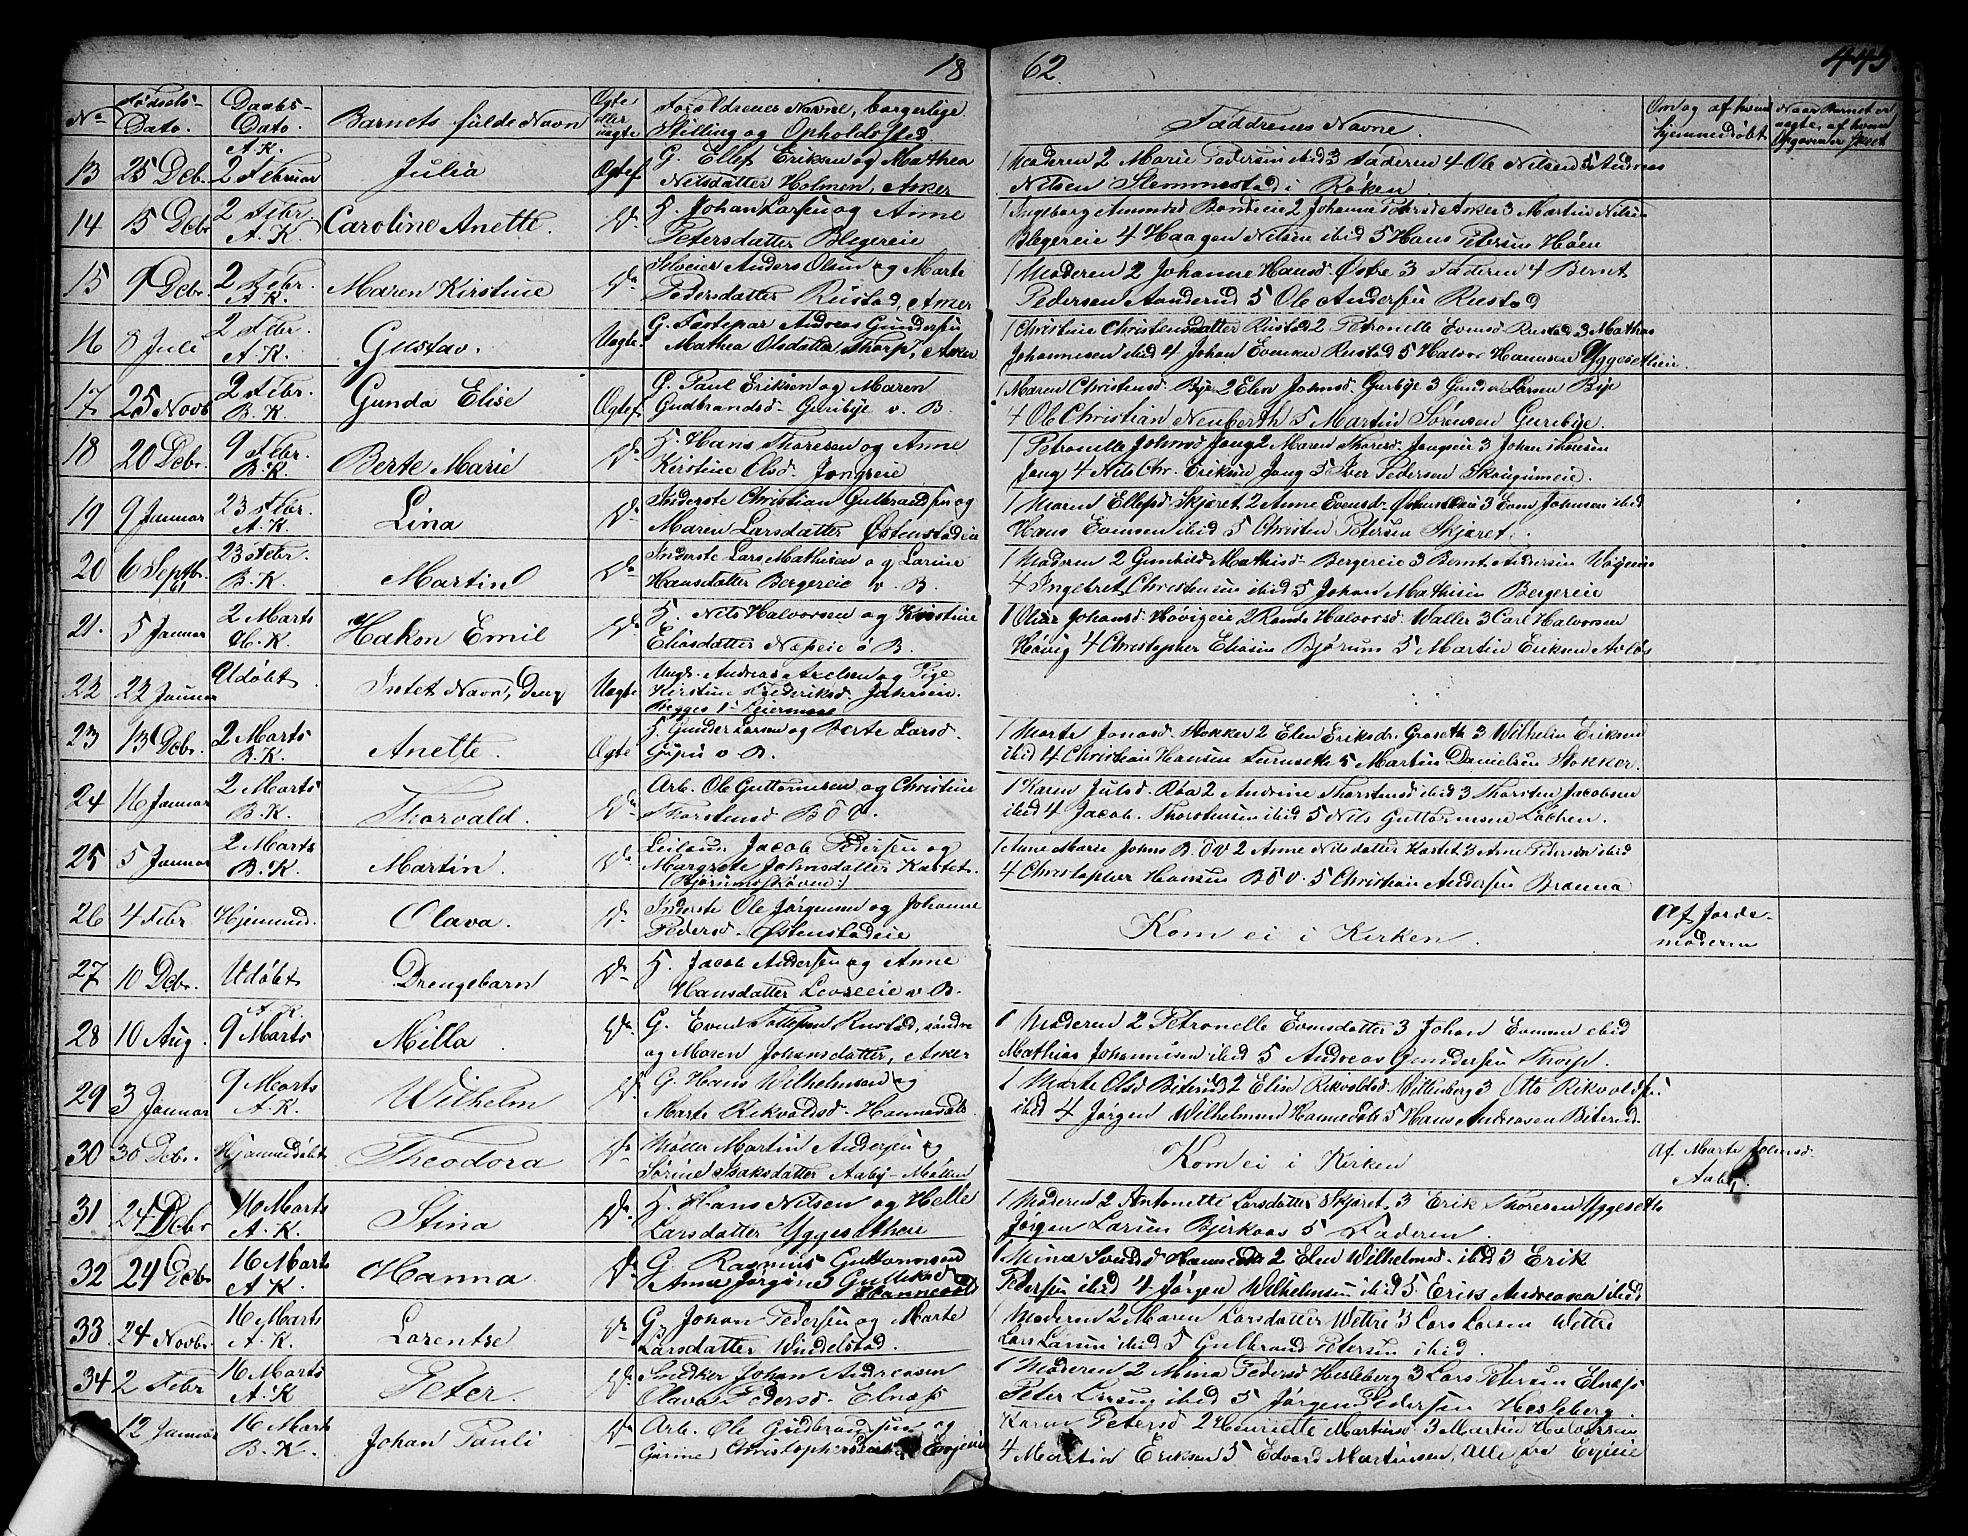 18
62.
445.
No
Fødsels-Dato.
Daabs-Dato.
Barnets fulde Navn
Ægte eller uægte
Forældrenes Navne, borgerlige
Stilling og Opholdssted
Faddrenes Navne.
Om og af hvem hjemmedøbt
13 25 Dcb. 2 Februar A.K. Julia Ægtef. G. Ellef Eriksen og Mathea
Nilsdatter Holmen, Asker
1 Moderen 2 Marie Pedersen ibid 3 Faderen 4 Ole Nilsen 5 Andreas
Nilsen Slemmestad i Røken
14 15 Dcbr 2 Febr. A.K. Caroline Anette. Do H. Johan Larsen og Anne
Petersdatter Blegereie
1 Ingeborg Amundsd. Bondeeie 2 Johanne Asker 3 Martin Nilsen
Blegereie 4 Haagen Nilsen ibid 5 Hans Petersen Høen
15 9 Dcbr. 2 Febr. A.K. Maren Kirstine Do Selveier Anders Olsen og Marte
Pedersdatter Rustad, Asker
1 Moderen 2 Johanne Hansd. Østre 3 Faderen 4 Bernt
Pedersen Aanderud 5 Ole Andersen Rustad
16 8 Juli 2 Febr. A.K. Gustav. Uægte. G. Andreas Gundersen
Mathea Olsdatter Thorp, Asker
1 Christine Christensdatter Rustad 2 Petronelle Evensd Rustad 3 Mathias
Johannesen ibid 4 Johan Evensen Rustad 5 Halvor Hansen Yggesetheie.
17 25 Novb 2 Febr. B.K. Gunda Elise Ægtef G. Paul Eriksen og Maren
Gudbrandsd. Guribye v. B.
1 Maren Christensd. Bye 2 Elen Johnsd. Guribye 3 Gunder Larsen Bye
4 Ole Christian Neuberth 5 Martin Sørensen Guribye.
18 20 Dcbr. 9 Febr. B.K. Berte Marie Do H. Hans Thoresen og Anne
Kirstine Olsd. Jongseie
1 Petronelle Johnsd Jong 2 Maren Thoresd. Jongseie 3 Johan Thoresen
Jong 4 Nils Chr. Eriksen Jong 5 Iver Pedersen Skougumeie.
19 9 Januar 23 Febr. A.K. Lina Do Inderste Christian Gulbrandsen og
Maren Larsdatter Østenstadeie
1 Maren Ellefsd. Skjøret 2 Anne Evensd. 3 Even Johnsen ibid
Hans Evensen ibid 5 Christen Petersen Skjøret.
20 6 Septbr. 61 23 Febr. B.K. Martin Do Inderste Lars Mathisen og Larine
Hansdatter Bergereie v. B.
1 Moderen 2 Gunhild Mathisd. Bergereie 3 Bernt Andersen
4 Ingebret Christensen ibid 5 Johan Mathisen Bergereie
21. 5 Januar 2 Marts H.K. Hakon Emil Do H. Nils Halvorsen og Kirstine
Eliasdatter Næseie ø B.
1 Johansd. Høvigeie 2 Halvorsd. Waller 3 Carl Halvorsen
Høvig 4 Christopher Eliasen Bjørum 5 Martin Eriksen Avløs
22 22 Januar Udøbt Intet Navn, Dreng Uægte Ungk. Andreas Axelsen og Pige
Kirstine Frederiksd. Jahrsen.
Begges 1ste Leiermaal
23 13 Dcbr. 2 Marts B.K. Anette. Ægte H. Gunder Larsen og Berte Larsd.
v B.
1 Marte Jonasd. Stokker 2 Elen Eriksdr. Groseth 3 Wilhelm Eriksen
ibid 4 Christian Hansen Furuseth 5 Martin Danielsen Stokker.
24 16 Januar 2 Marts B.K. Thorvald. Do Arb. Ole Guttormsen og Christine
Thorstensd Böv.
1 Karen Julsd. Röa 2 Andrine Thorstensd ibid 3 Thorsten Jacobsen
ibid 4 Jacob Thorstensen ibid 5 Nils Guttormsen Løkken.
25 5 Januar 2 Marts B.K. Martin. Do Leiland. Jacob Pedersen og
Margrete Johnsdatter Kastet.
(Bjørumsskoven.)
1 Anne Marie Johns Böv 2 Anne Nilsdatter Kastet 3 Arne Petersen ibid
4 Christopher Hansen Böv. 5 Christian Andersen Brenna
26 4 Febr Hjemmed. Olava. Do Inderste Ole Jørgensen og Johanne
Pedersd. Østenstadeie
Kom ei i Kirken.
Af Jordemoderen
27 10 Dcbr. Udøbt Drengebarn Do H. Jacob Andersen og Anne
Hansdatter v B.
28 10 Aug. 9 Marts A.K. Milla Do G. Even Tollefsen Rustad, søndre
og Maren Johansdatter, Asker
1 Moderen 2 Petronelle Evensdatter 3 Johan Evensen ibid
Mathias Johannesen ibid 5 Andreas Gundersen Thorp.
29 3 Januar 9 Marts A.K. Wilhelm Do G. Hans Wilhelmsen og
Marte Rikvoldsd. Hannedals.
1 Marte Olsd Bilerud 2 Elise Rikvoldsd. Willenberg 3 Otto Rikvoldsen
ibid 4 Jørgen Wilhelmsen Hannedals 5 Hans Andreasen Bilerud.
30 30 Dcbr. Hjemmedøbt Theodora Do Møller Martin Andersen og
Sørine Isaksdatter Aaby-Møllen
Kom ei i Kirken
Af Marte Joensd.
Aaby.
31 24 Dcbr 16 Marts A.K. Stina Do H. Hans Nilsen og Helle
Larsdatter Yggesetheie
1 Moderen 2 Antonette Larsdatter Skjøret, 3 Erik Thoresen Yggeseth
Jørgen Larsen Bjerkaas 5 Faderen.
32 24 Dcb. 16 Marts A.K. Hanna Do G. Rasmus Guttormsen
Anne Jørgine Gulliksd
Hannevold
1 Mina 2 Elen Wilhelmsd. ibid 3 Erik
Pedersen ibid 4 Jørgen Wilhelmsen ibid 5. Eriks Andreasen ibid
33 24 Novbr. 16 Marts A.K. Lorentse Do G. Johan Pedersen og Marte
Larsdatter Windelstad.
1 Moderen 2 Maren Larsdatter Wettre 3 Lars Larsen Wettre
Lars Larsen ibid 5 Gulbrand Petersen ibid.
34 2 Febr 16 Marts A.K. Peter. Do Snedker Johan Andreasen
Olava Pedersd. Elnæs
1 Moderen 2 Mina Pedersd Hesleberg 3 Lars Petersen Elnæs
Peter ibid 5 Jørgen Pedersen Hesleberg.
12 Januar 16 Marts B.K. Johan Pauli Do Arb. Ole Gudbrandsen og
Evjeeie
Karen Petersd 2 Henriette Martinsd 3 Martin Halvorsen
4 Martin Eriksen 5 Edvard Martinsen, Alle fra Evjeeie